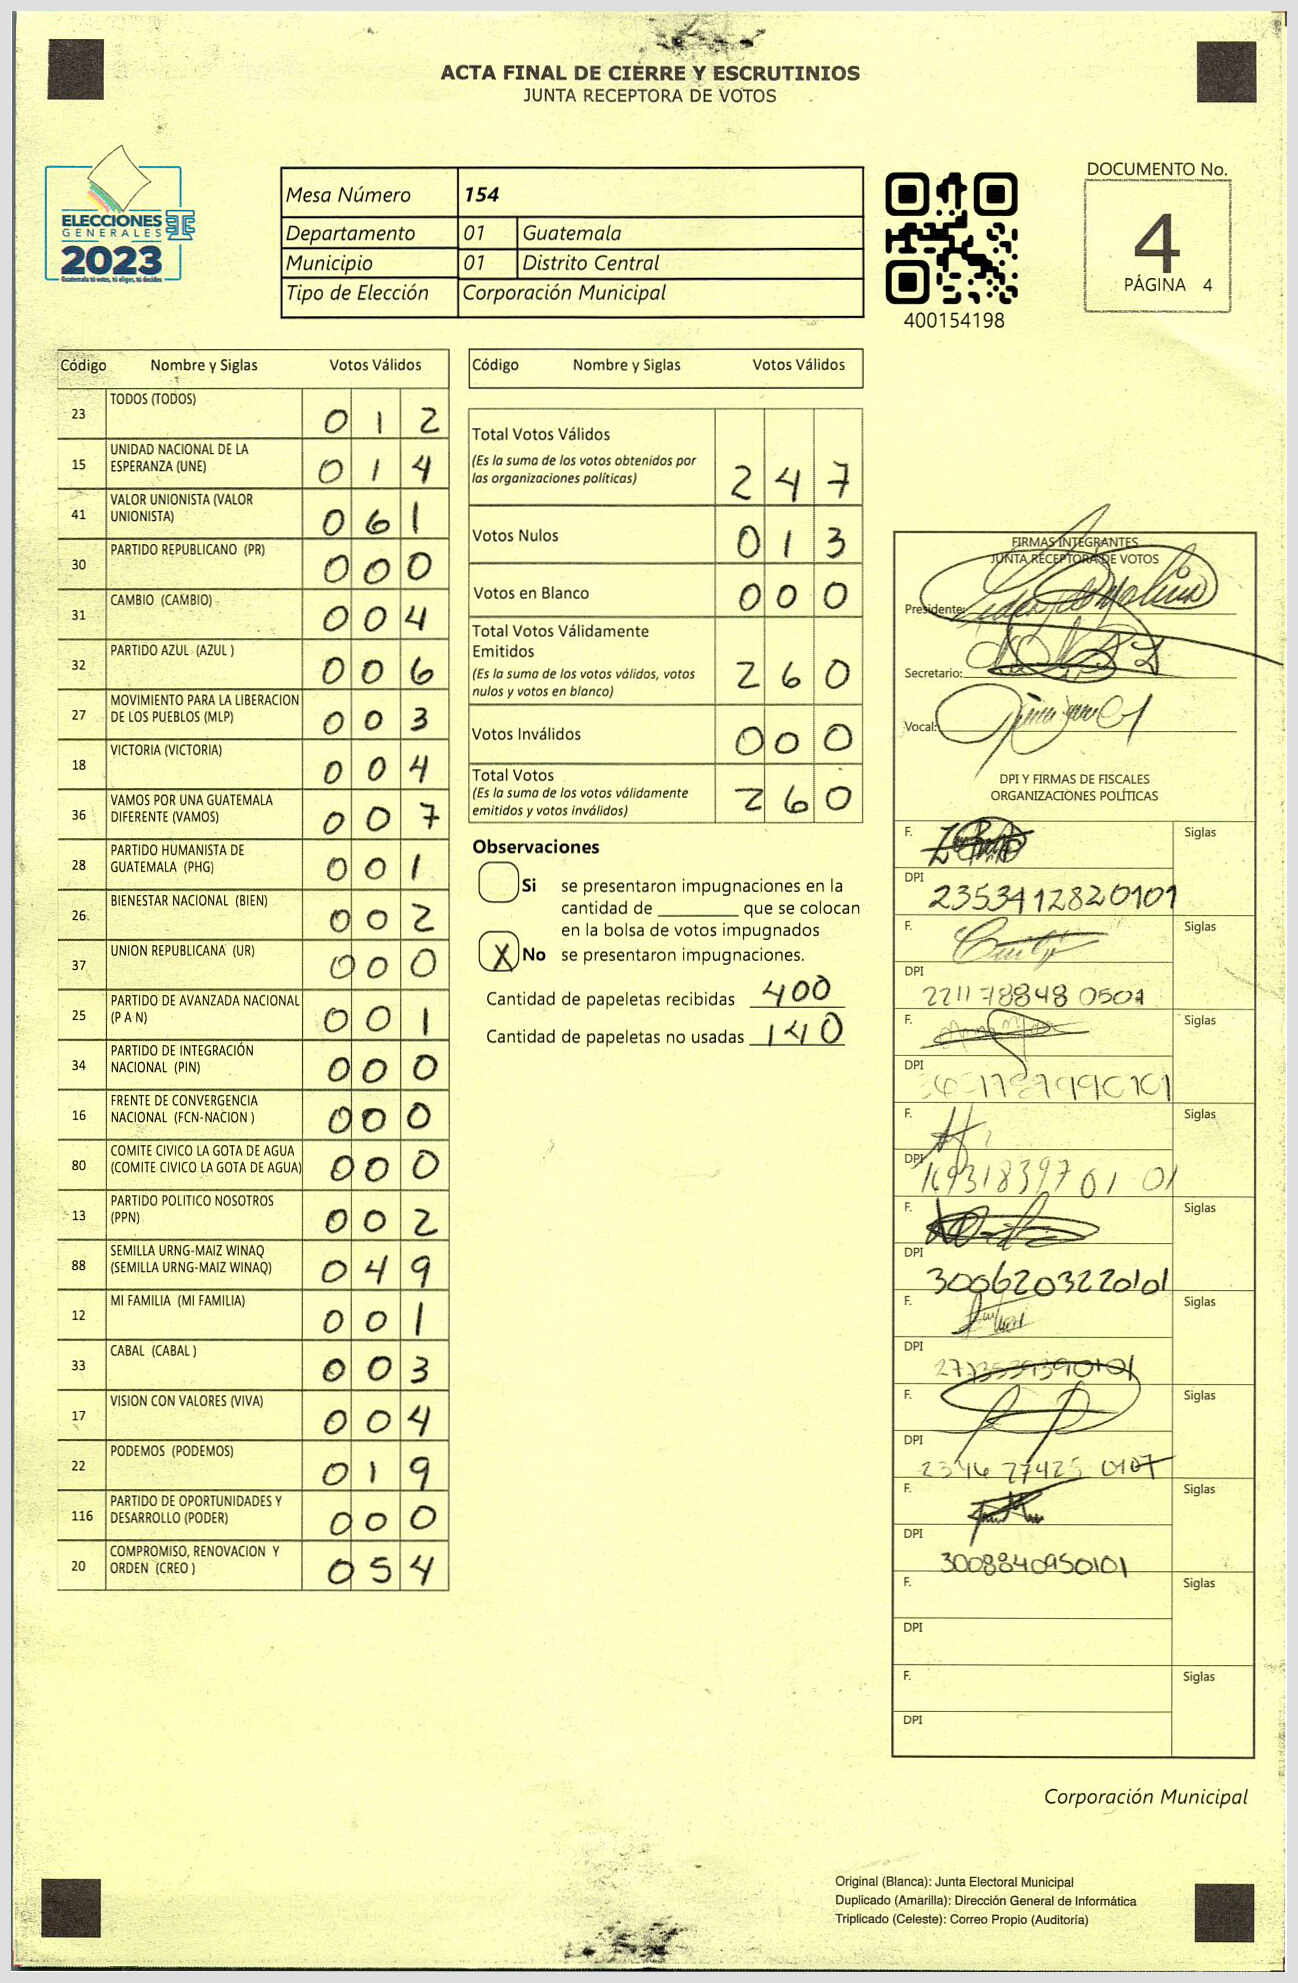 ACTA FINAL DE CIERRE Y ESCRUTINIOS
JUNTA RECEPTORA DE VOTOS
ELECCIONES
GENERALES
2023
Guatemala tú votas, tú eliges, tú decides
Mesa Número 154
Departamento 01 Guatemala
Municipio 01 Distrito Central
Tipo de Elección Corporación Municipal
400154198
DOCUMENTO No.
4
PÁGINA 4
Código Nombre y Siglas Votos Válidos
23 TODOS (TODOS) 0 1 2
15 UNIDAD NACIONAL DE LA
ESPERANZA (UNE) 0 1 4
41 VALOR UNIONISTA (VALOR
UNIONISTA) 0 6 1
30 PARTIDO REPUBLICANO (PR) 0 0 0
31 CAMBIO (CAMBIO) 0 0 4
32 PARTIDO AZUL (AZUL ) 0 0 6
27 MOVIMIENTO PARA LA LIBERACION
DE LOS PUEBLOS (MLP) 0 0 3
18 VICTORIA (VICTORIA) 0 0 4
36 VAMOS POR UNA GUATEMALA
DIFERENTE (VAMOS) 0 0 7
28 PARTIDO HUMANISTA DE
GUATEMALA (PHG) 0 0 1
26 BIENESTAR NACIONAL (BIEN) 0 0 2
37 UNION REPUBLICANA (UR) 0 0 0
25 PARTIDO DE AVANZADA NACIONAL
(P A N) 0 0 1
34 PARTIDO DE INTEGRACIÓN
NACIONAL (PIN) 0 0 0
16 FRENTE DE CONVERGENCIA
NACIONAL (FCN-NACION ) 0 0 0
80 COMITE CIVICO LA GOTA DE AGUA
(COMITE CIVICO LA GOTA DE AGUA) 0 0 0
13 PARTIDO POLITICO NOSOTROS
(PPN) 0 0 2
88 SEMILLA URNG-MAIZ WINAQ
(SEMILLA URNG-MAIZ WINAQ) 0 4 9
12 MI FAMILIA (MI FAMILIA) 0 0 1
33 CABAL (CABAL ) 0 0 3
17 VISION CON VALORES (VIVA) 0 0 4
22 PODEMOS (PODEMOS) 0 1 9
116 PARTIDO DE OPORTUNIDADES Y
DESARROLLO (PODER) 0 0 0
20 COMPROMISO, RENOVACION Y
ORDEN (CREO ) 0 5 4
Código Nombre y Siglas Votos Válidos
Total Votos Válidos
(Es la suma de los votos obtenidos por
las organizaciones políticas) 2 4 7
Votos Nulos 0 1 3
Votos en Blanco 0 0 0
Total Votos Válidamente
Emitidos
(Es la suma de los votos válidos, votos
nulos y votos en blanco) 2 6 0
Votos Inválidos 0 0 0
Total Votos
(Es la suma de los votos válidamente
emitidos y votos inválidos) 2 6 0
Observaciones
Si se presentaron impugnaciones en la
cantidad de ________ que se colocan
en la bolsa de votos impugnados
X No se presentaron impugnaciones.
Cantidad de papeletas recibidas 400
Cantidad de papeletas no usadas 140
FIRMAS INTEGRANTES
JUNTA RECEPTORA DE VOTOS
Presidente:
Secretario:
Vocal:
DPI Y FIRMAS DE FISCALES
ORGANIZACIONES POLÍTICAS
F. Siglas
DPI
2353412820101
F. Siglas
DPI
2211 78848 0501
F. Siglas
DPI
F. Siglas
DPI
169318397 01 01
F. Siglas
DPI
3006203220101
F. Siglas
DPI
F. Siglas
DPI
2346 27425 0107
F. Siglas
DPI
3008840950101
F. Siglas
DPI
F. Siglas
DPI
Corporación Municipal
Original (Blanca): Junta Electoral Municipal
Duplicado (Amarilla): Dirección General de Informática
Triplicado (Celeste): Correo Propio (Auditoría)